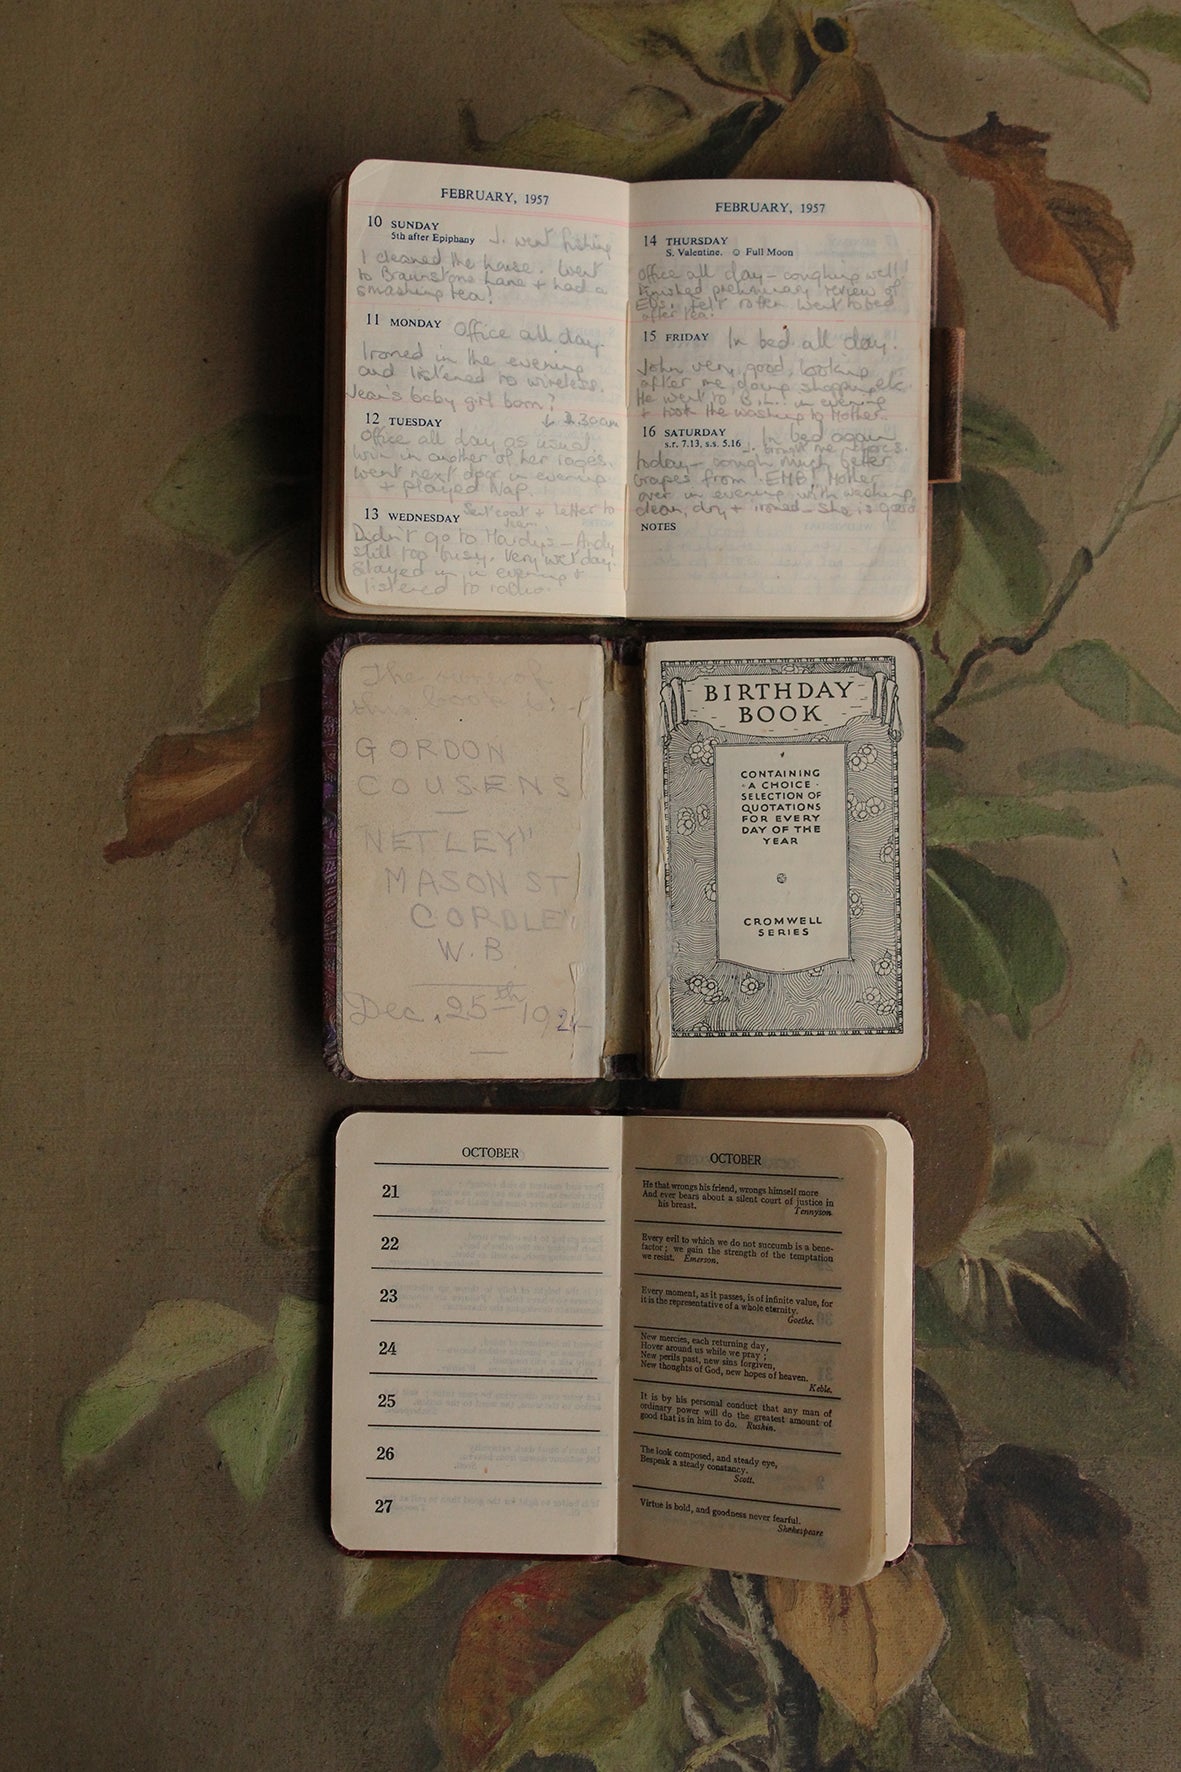 FEBRUARY, 1957
10 SUNDAY
5th after Epiphany J. went fishing
I cleaned the house. Went
to Braunstone Lane + had a
smashing tea!
11 MONDAY Office all day.
Ironed in the evening
and listened to wireless.
Jean's baby girl born?
12 TUESDAY
Office all day as usual
in another of her rages.
Went next door in evening
+ played Nap.
13 WEDNESDAY Sent coat + letter to
Jean.
Didn't go to Hardys - Andy
still too busy. Very wet day.
Stayed in in evening +
listened to radio.
FEBRUARY, 1957
14 THURSDAY
S. Valentine. Full Moon
Office all day - coughing well!
Finished preliminary review of
Felt rotten went to bed
after tea.
15 FRIDAY In bed all day.
John very good, looking
after me, doing shopping etc.
He went to B.L. in evening
+ took the washing to Mother.
16 SATURDAY In bed again
s.r. 7.13, s.s. 5.16 J. brought me chocs.
today - cough much better
Grapes from EMB. Mother
over in evening with washing,
clean, dry + ironed - She is good
NOTES
The
GORDON
COUSENS
"NETLEY"
MASON ST
W.B.
Dec. 25th
BIRTHDAY
BOOK
CONTAINING
A CHOICE
SELECTION OF
QUOTATIONS
FOR EVERY
DAY OF THE
YEAR
CROMWELL
SERIES
OCTOBER
21
22
23
24
25
26
27
OCTOBER
He that wrongs his friend, wrongs himself more
And ever bears about a silent court of justice in
his breast. Tennyson.
Every evil to which we do not succumb is a bene-
factor; we gain the strength of the temptation
we resist. Emerson.
Every moment, as it passes, is of infinite value, for
it is the representative of a whole eternity.
Goethe.
New mercies, each returning day,
Hover around us while we pray;
New perils past, new sins forgiven,
New thoughts of God, new hopes of heaven.
Keble.
It is by his personal conduct that any man of
ordinary power will do the greatest amount of
good that is in him to do. Ruskin.
The look composed, and steady eye,
Bespeak a steady constancy.
Scott.
Virtue is bold, and goodness never fearful.
Shakespeare